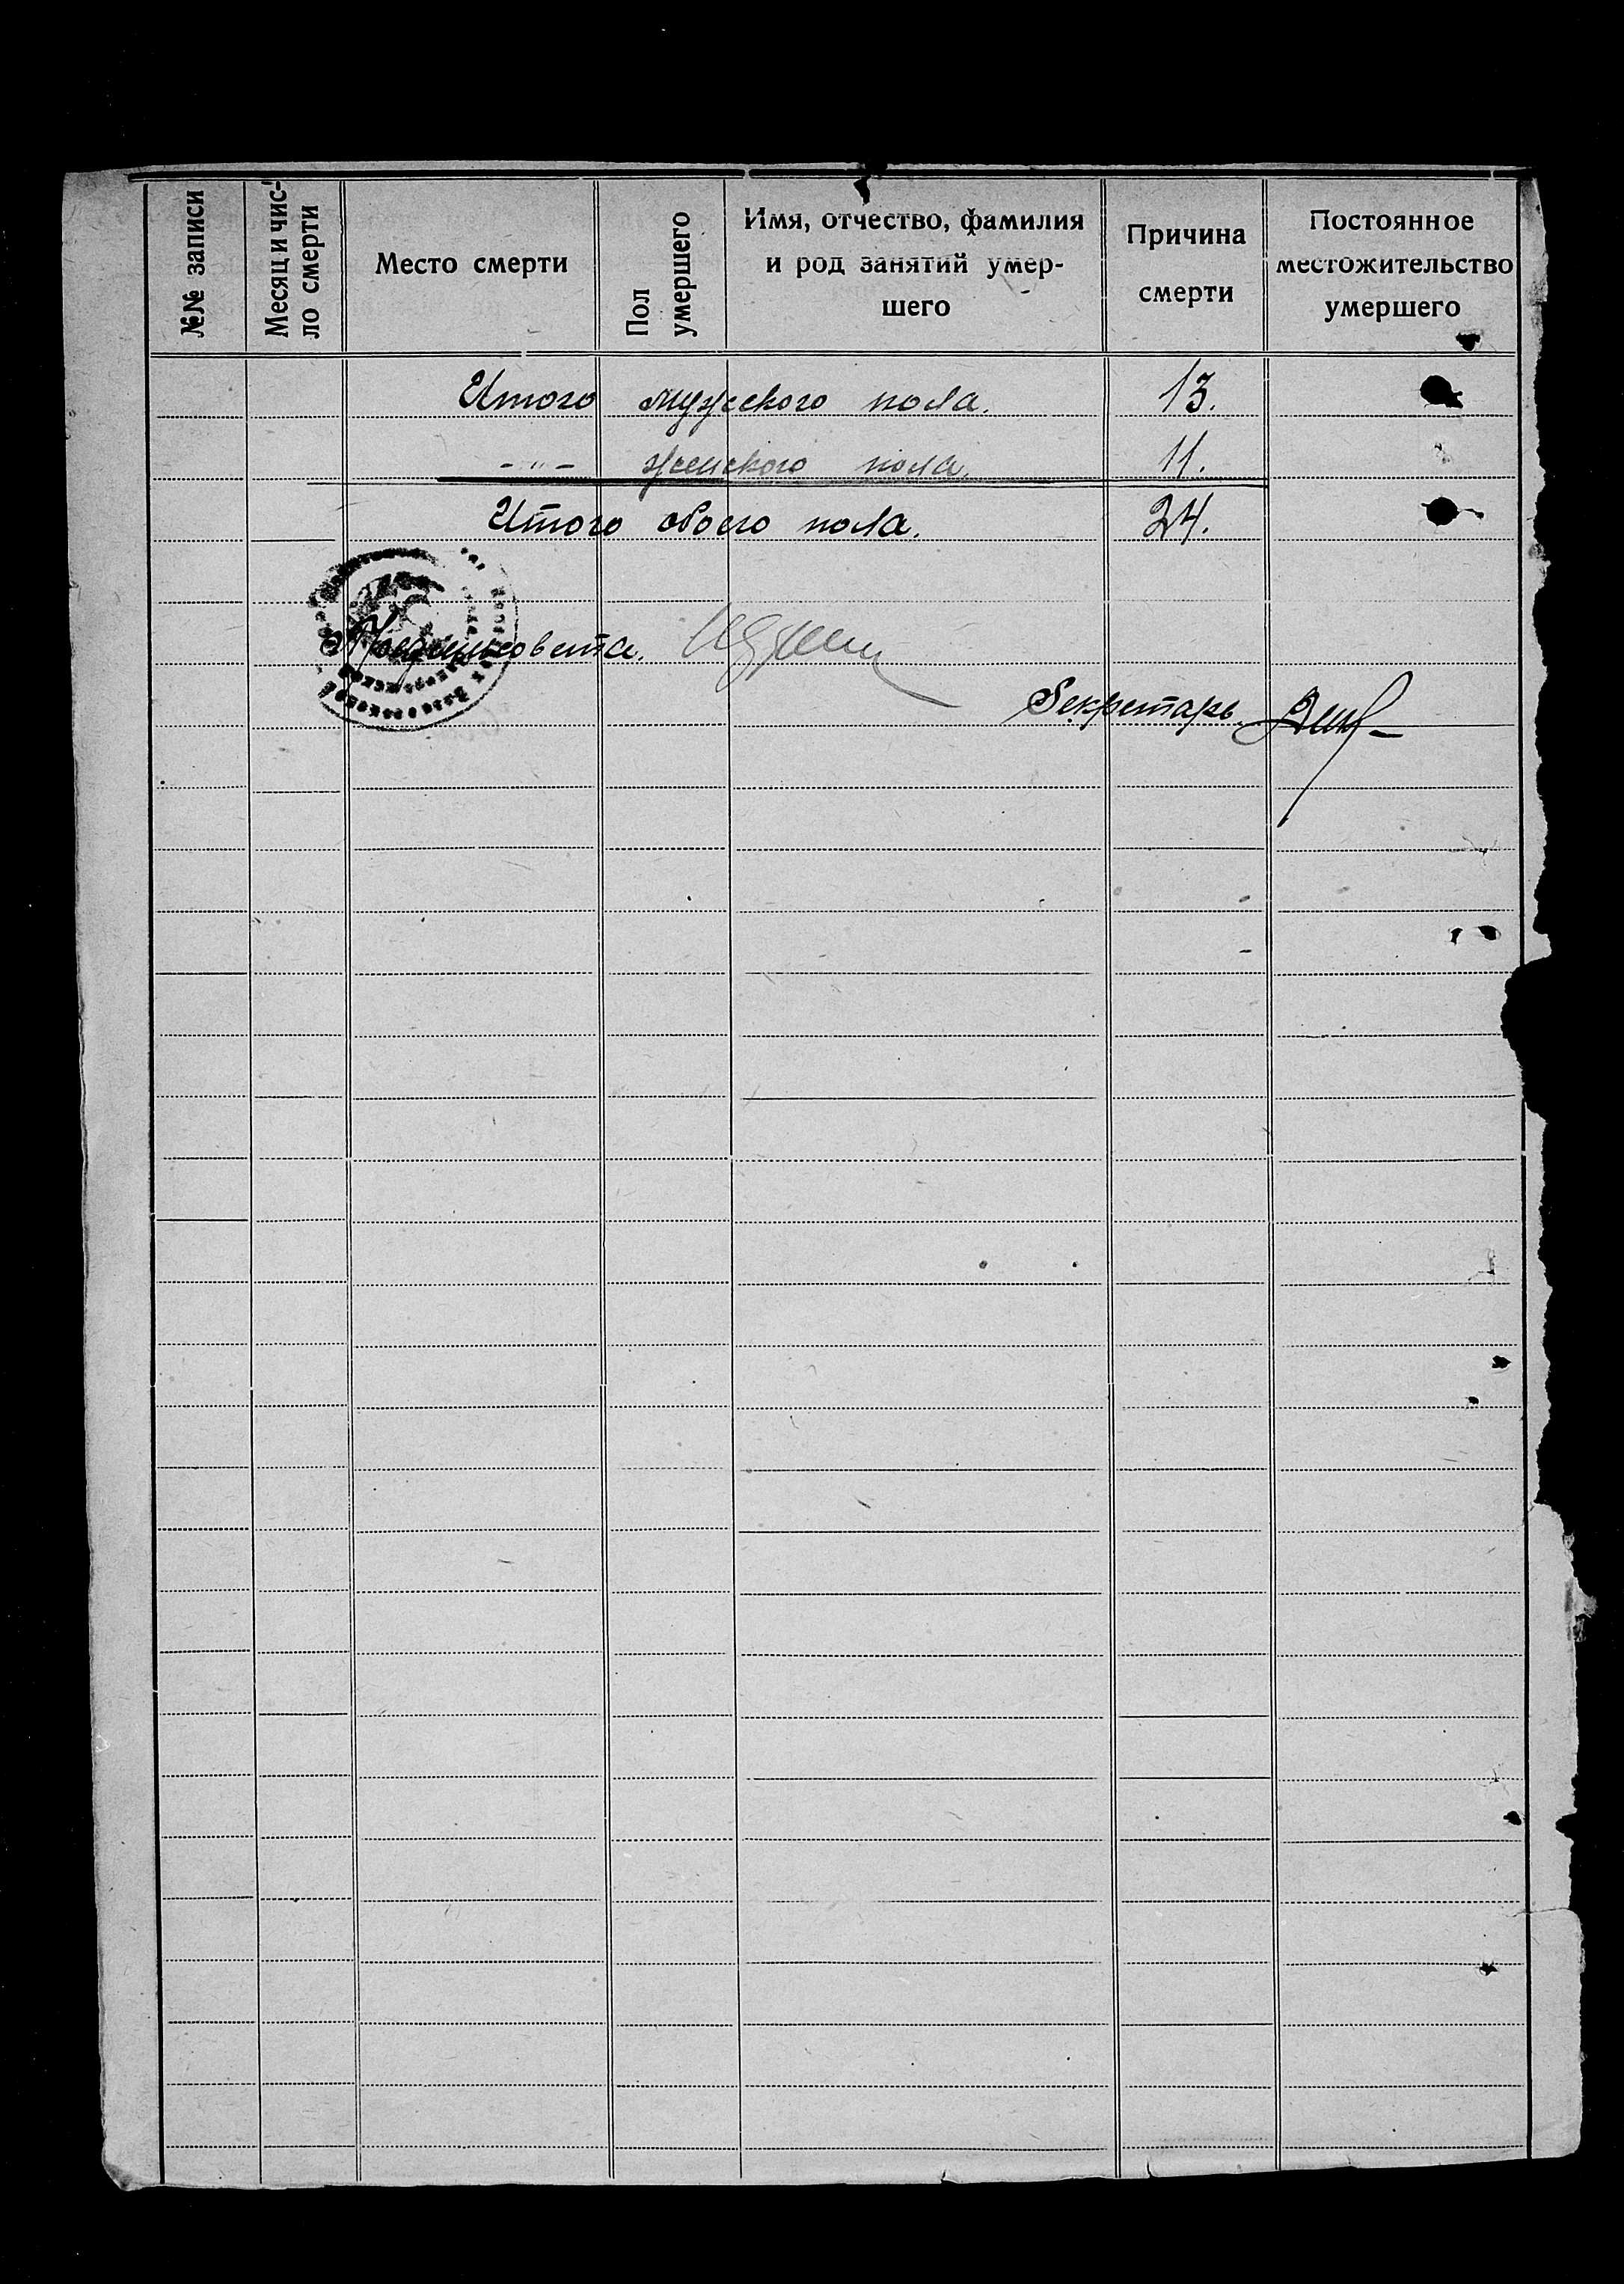 №№ записи
Месяц и чис-
ло смерти
Место смерти
Пол
умершего
Имя, отчество, фамилия
и род занятий умер-
шего
Причина
смерти
Постоянное
местожительство
умершего
Итого мужского пола. 13.
-"- женского пола. 11.
Итого обоего пола. 24.
Предсельсовета.
Секретарь